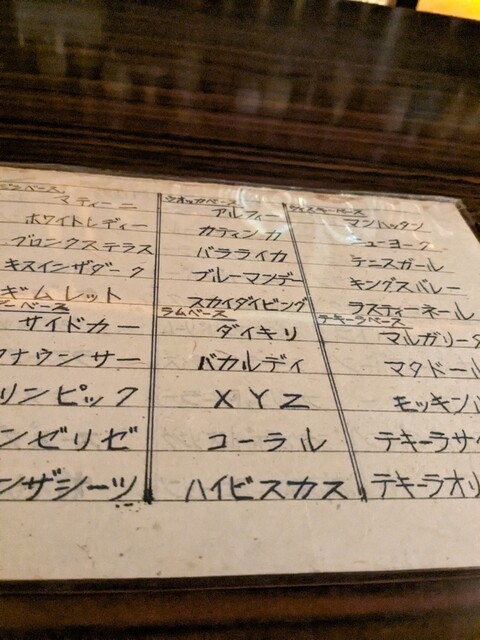 ジンベース
マティーニ
ホワイトレディー
ブロンクステラス
キスインザダーク
ギムレット
ベース
サイドカー
ナウンサー
リンピック
ンゼリゼ
ンザシーツ
ウオッカベース
アルフィー
カティンカ
バラライカ
ブルーマンデー
スカイダイビング
ラムベース
ダイキリ
バカルディ
XYZ
コーラル
ハイビスカス
ウイスキーベース
マンハッタン
ニューヨーク
テニスガール
キングスバレー
ラスティーネール
テキーラベース
マルガリータ
マタドール
モッキン
テキーラサ
テキーラオリ